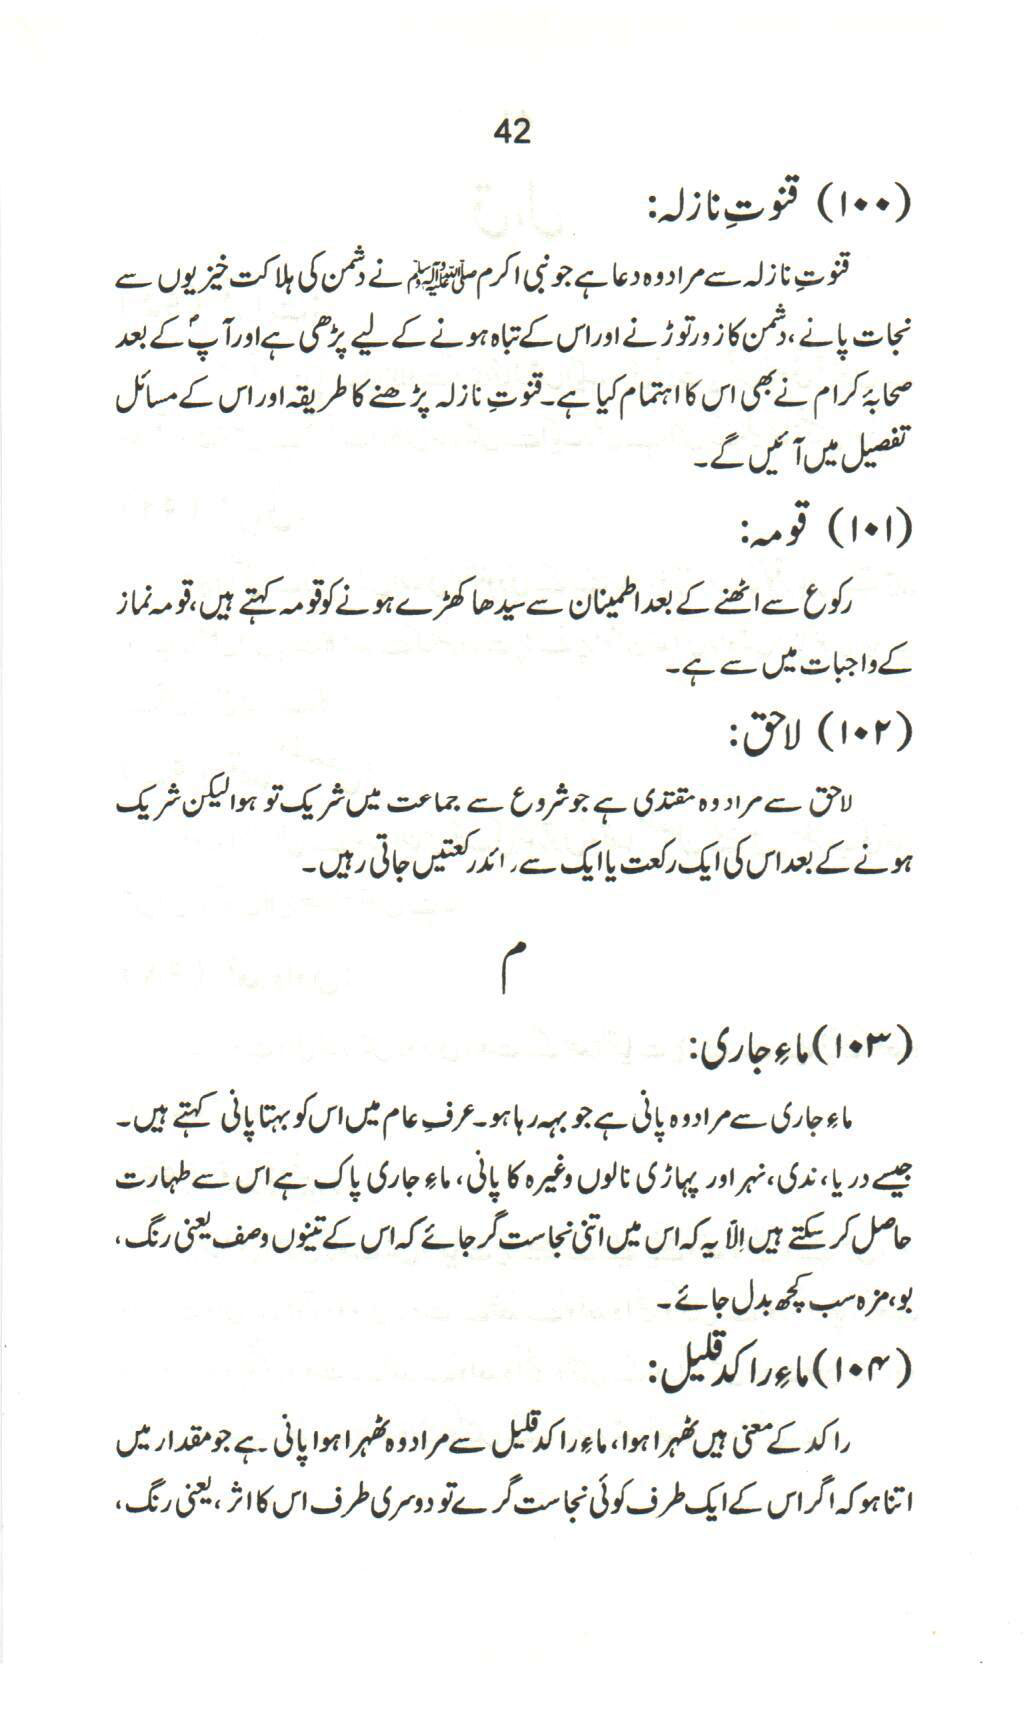 42
(۱۰۰) قنوتِ نازلہ:
قنوتِ نازلہ سے مراد وہ دعا ہے جو نبی اکرم ﷺ نے دشمن کی ہلاکت خیزیوں سے
نجات پانے، دشمن کا زور توڑنے اور اس کے تباہ ہونے کے لیے پڑھی ہے اور آپؐ کے بعد
صحابۂ کرام نے بھی اس کا اہتمام کیا ہے۔ قنوتِ نازلہ پڑھنے کا طریقہ اور اس کے مسائل
تفصیل میں آئیں گے۔
(۱۰۱) قومہ:
رکوع سے اٹھنے کے بعد اطمینان سے سیدھا کھڑے ہونے کو قومہ کہتے ہیں، قومہ نماز
کے واجبات میں سے ہے۔
(۱۰۲) لاحق:
لاحق سے مراد وہ مقتدی ہے جو شروع سے جماعت میں شریک تو ہوا لیکن شریک
ہونے کے بعد اس کی ایک رکعت یا ایک سے زائد رکعتیں جاتی رہیں۔
م
(۱۰۳) ماءِ جاری:
ماءِ جاری سے مراد وہ پانی ہے جو بہہ رہا ہو۔ عرفِ عام میں اس کو بہتا پانی کہتے ہیں۔
جیسے دریا، ندی، نہر اور پہاڑی نالوں وغیرہ کا پانی، ماءِ جاری پاک ہے اس سے طہارت
حاصل کر سکتے ہیں اِلّا یہ کہ اس میں اتنی نجاست گر جائے کہ اس کے تینوں وصف یعنی رنگ،
بو، مزہ سب کچھ بدل جائے۔
(۱۰۴) ماءِ راکد قلیل:
راکد کے معنی ہیں ٹھہرا ہوا، ماءِ راکد قلیل سے مراد وہ ٹھہرا ہوا پانی ہے جو مقدار میں
اتنا ہو کہ اگر اس کے ایک طرف کوئی نجاست گرے تو دوسری طرف اس کا اثر، یعنی رنگ،